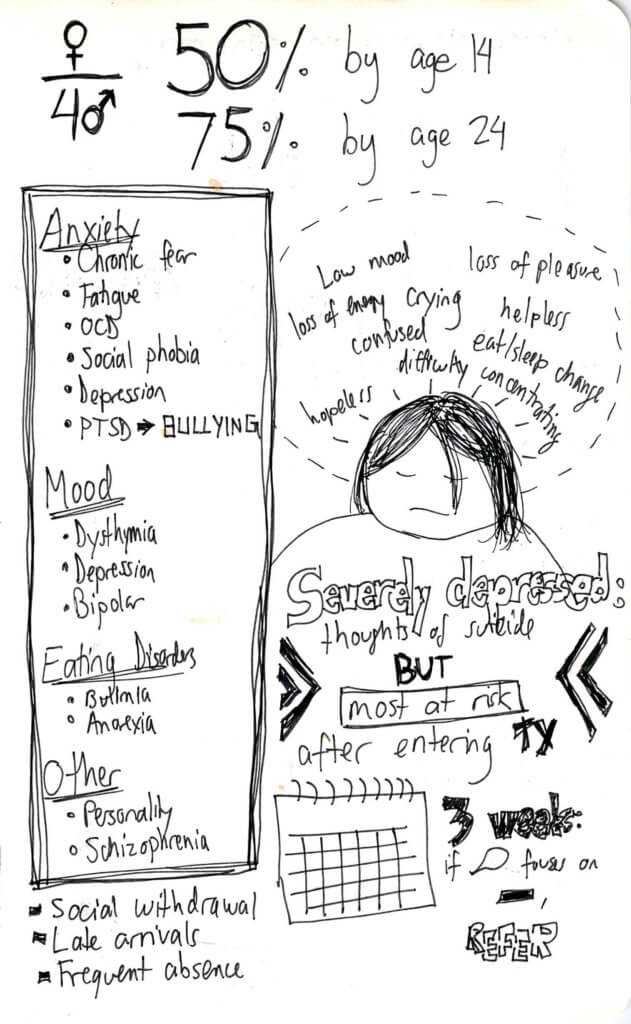 ♀
4♂
50% by age 14
75% by age 24
Anxiety
• Chronic fear
• Fatigue
• OCD
• Social phobia
• Depression
• PTSD ➔ BULLYING
Mood
• Dysthymia
• Depression
• Bipolar
Eating Disorders
• Bulimia
• Anorexia
Other
• Personality
• Schizophrenia
Social withdrawal
Late arrivals
Frequent absence
Low mood
loss of pleasure
loss of energy
crying
helpless
confused
eat/sleep change
difficulty concentrating
hopeless
Severely depressed:
thoughts of suicide
BUT
most at risk
after entering TX
3 weeks:
if focus on
–,
REFER